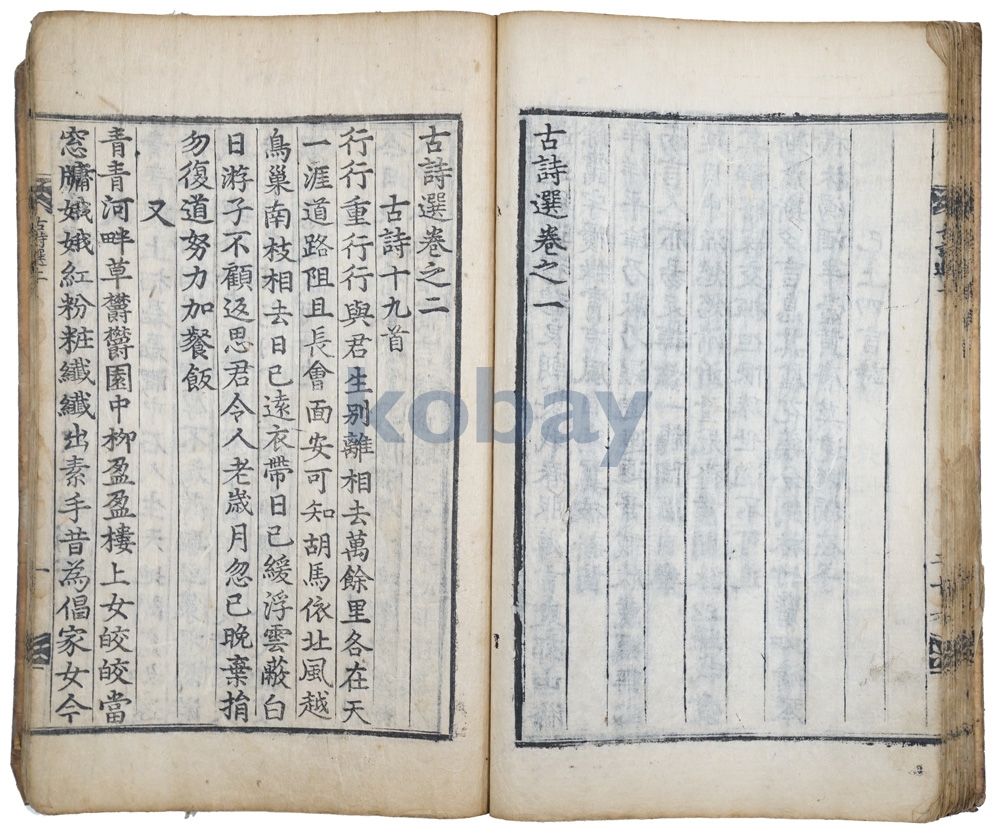 古詩選卷之一
古詩選卷之二
古詩十九首
行行重行行與君生別離相去萬餘里各在天
一涯道路阻且長會面安可知胡馬依北風越
鳥巢南枝相去日已遠衣帶日已緩浮雲蔽白
日游子不顧返思君令人老歲月忽已晚棄捐
勿復道努力加餐飯
又
青青河畔草欝欝園中柳盈盈樓上女皎皎當
窓牗娥娥紅粉粧纖纖出素手昔為倡家女今
古詩選二
一
kobay